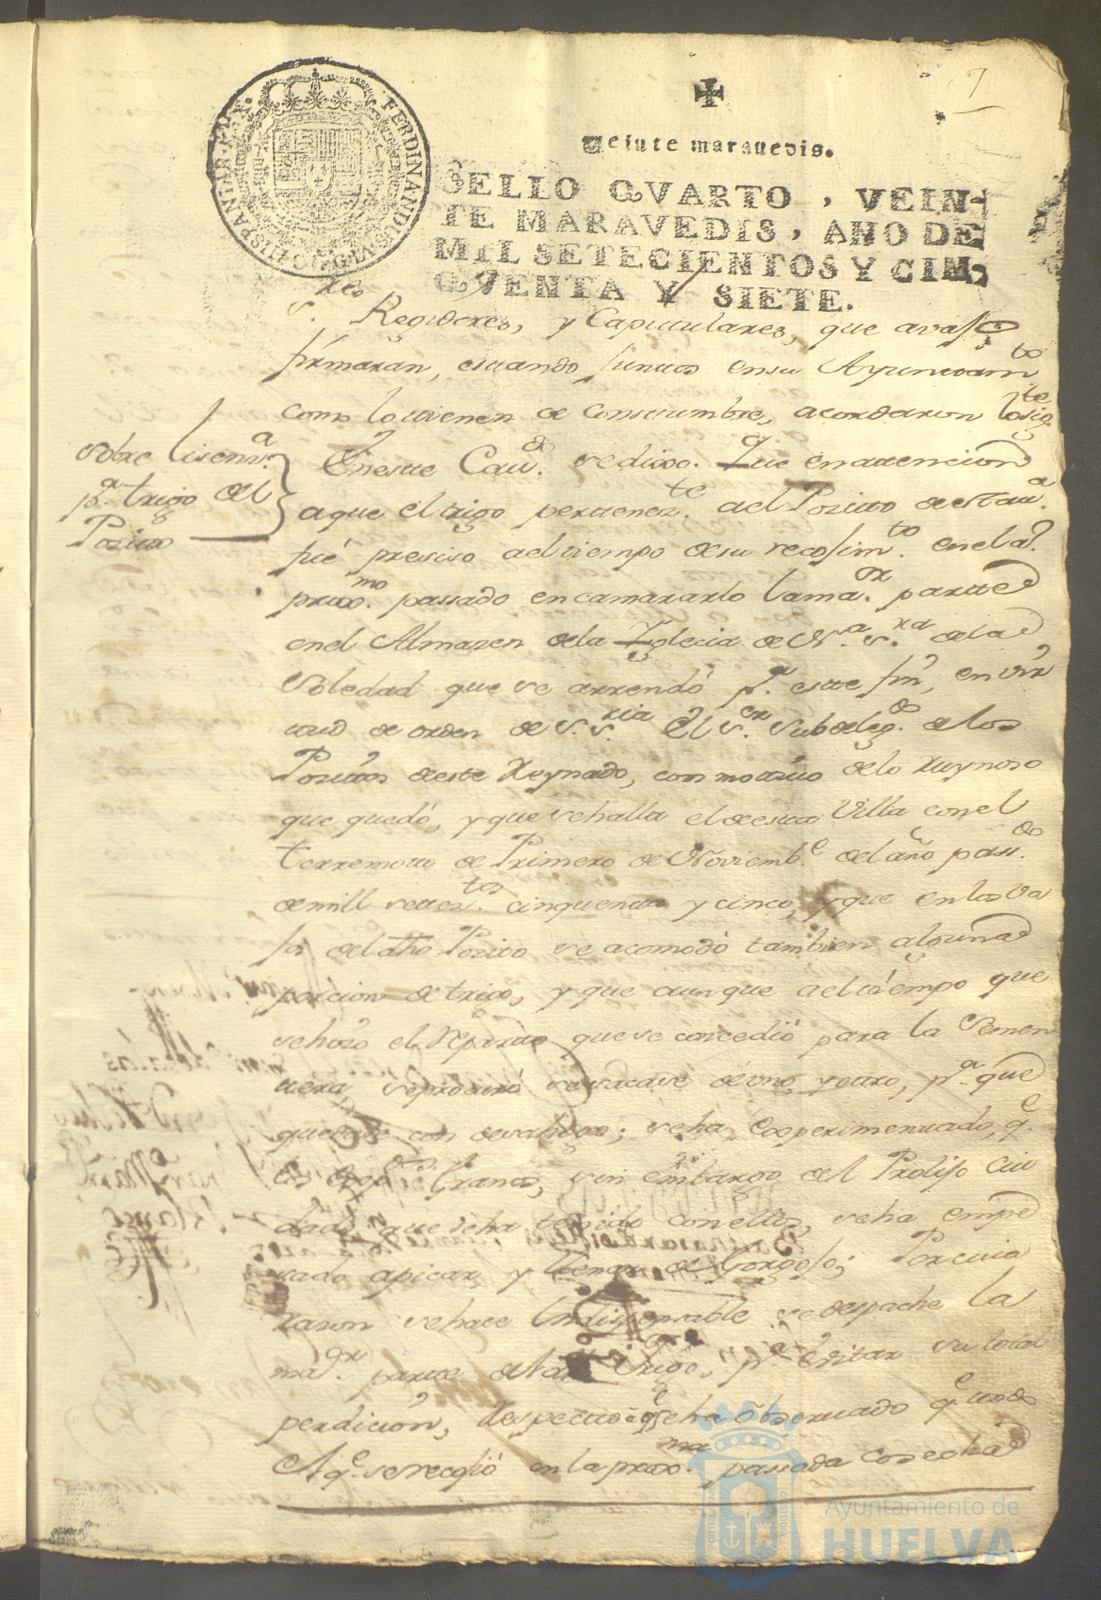 7
Veinte marauedis.
SELLO QVARTO, VEIN-
TE MARAVEDIS, AÑO DE
MIL SETECIENTOS Y CIN,
QVENTA Y SIETE.
FERDINANDUS VI D G HISPANIAR REX
s.res Regidores, y Capitulares, que avajo
firmaran, estando juntos en su Ayuntam.to
como lo tienen de Constumbre, acordaron lo sig.te
sobre lisens.a
p.a trigo del
Pozito
En este Cav.do se dixo. Que en attencion
a que el trigo pertenez.te a el Pozito de esta v.a
fué presiso a el tiempo de su recojim.to en el a.o
prox.mo passado encamararlo la ma.or parte
en el Almazen de la Yglecia de N.a s.ra de la
Soledad que se arrendó p.a este fin, en vir
tud de orden de s. s.ria El s.or Subdeleg.do de los
Pozitos de este Reynado, con motivo de lo ruynoso
que quedó, y que se halla el de esta Villa con el
terremoto de Primero de Noviemb.e del año pass.do
de mill setez.tos cinquenta y cinco, y que en los va
jos del dho Pozito se acomodó tambien alguna
porcion de trigo, y que aunque a el tiempo que
se hizo el Reparto que se concedió para la Semen
tera, se procuró se sacase de uno, y otro, p.a que
quedase con desahogo; se ha experimentado, q.e
los granos, sin embargo del Prolijo Cui
dado que se ha tenido con ellos, se ha empe
sado a picar y llenar de Gorgojo; Por cuia
razon se hace Yndispensable se despache la
ma.or parte de Trigo, p.a evitar su total
perdicion, Respecto a q.e se ha observado q.e todo
el q.e se recojió en la prox.ma passada cosecha
Ayuntamiento de
HUELVA